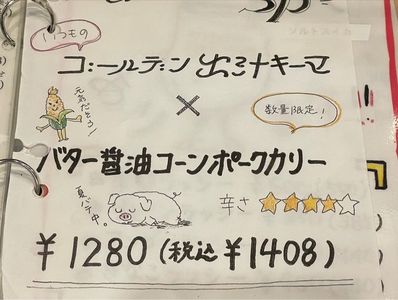 いつもの
ゴールデン出汁キーマ
元気だそう!
×
数量限定!
バター醤油コーンポークカリー
夏バテ中。
辛さ ★★★★☆
¥1280(税込¥1408)